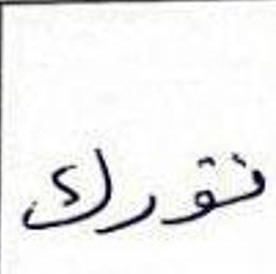 نقورك